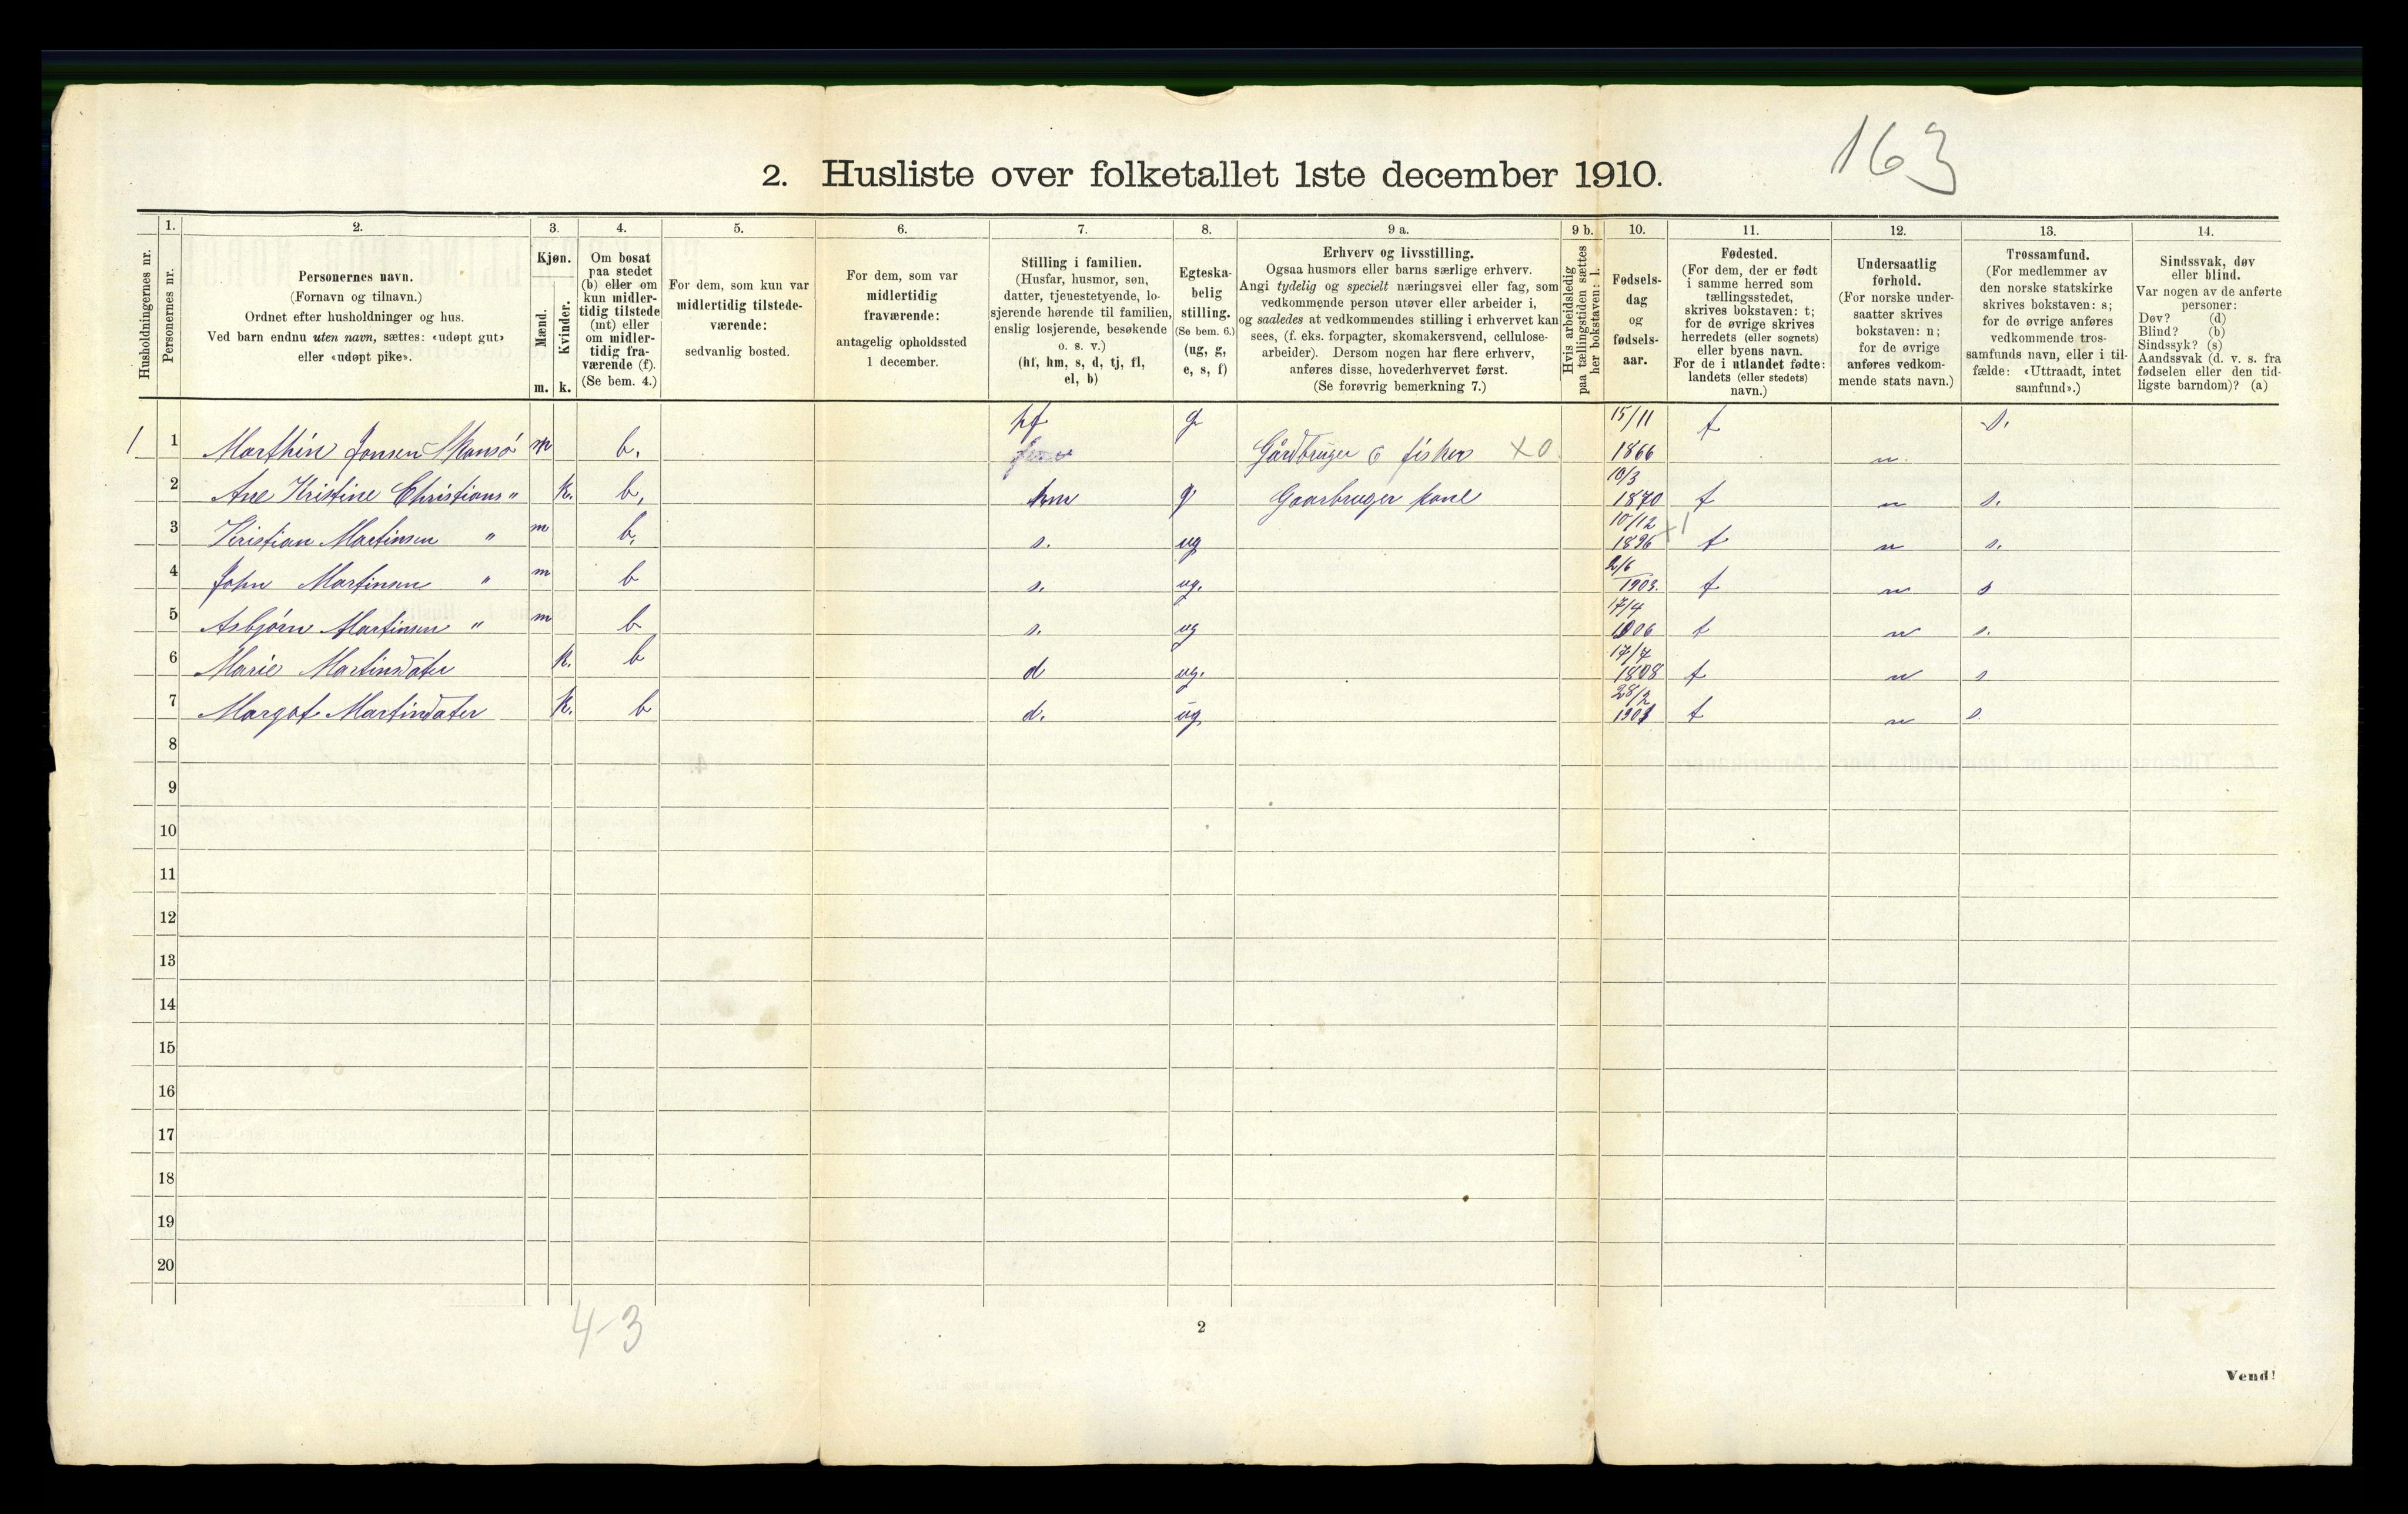 163
2. Husliste over folketallet 1ste december 1910.
Husholdningernes nr.
1. Personernes nr.
2. Personernes navn.
(Fornavn og tilnavn.)
Ordnet efter husholdninger og hus.
Ved barn endnu uten navn, sættes: «udøpt gut»
eller «udøpt pike».
3. Kjøn.
Mænd. m.
Kvinder. k.
4. Om bosat
paa stedet
(b) eller om
kun midler-
tidig tilstede
(mt) eller
om midler-
tidig fra-
værende (f).
(Se bem. 4.)
5. For dem, som kun var
midlertidig tilstede-
værende:
sedvanlig bosted.
6. For dem, som var
midlertidig
fraværende:
antagelig opholdssted
1 december.
7. Stilling i familien.
(Husfar, husmor, søn,
datter, tjenestetyende, lo-
sjerende hørende til familien,
enslig losjerende, besøkende
o. s. v.)
(hf, hm, s, d, tj, fl,
el, b)
8. Egteska-
belig
stilling.
(Se bem. 6.)
(ug, g,
e, s, f)
9 a. Erhverv og livsstilling.
Ogsaa husmors eller barns særlige erhverv.
Angi tydelig og specielt næringsvei eller fag, som
vedkommende person utøver eller arbeider i,
og saaledes at vedkommendes stilling i erhvervet kan
sees, (f. eks. forpagter, skomakersvend, cellulose-
arbeider). Dersom nogen har flere erhverv,
anføres disse, hovederhvervet først.
(Se forøvrig bemerkning 7.)
9 b. Hvis arbeidsledig
paa tællingstiden sættes
her bokstaven: l.
10. Fødsels-
dag
og
fødsels-
aar.
11. Fødested.
(For dem, der er født
i samme herred som
tællingsstedet,
skrives bokstaven: t;
for de øvrige skrives
herredets (eller sognets)
eller byens navn.
For de i utlandet fødte:
landets (eller stedets)
navn.)
12. Undersaatlig
forhold.
(For norske under-
saatter skrives
bokstaven: n;
for de øvrige
anføres vedkom-
mende stats navn.)
13. Trossamfund.
(For medlemmer av
den norske statskirke
skrives bokstaven: s;
for de øvrige anføres
vedkommende tros-
samfunds navn, eller i til-
fælde: «Uttraadt, intet
samfund».)
14. Sindssvak, døv
eller blind.
Var nogen av de anførte
personer:
Døv? (d)
Blind? (b)
Sindssyk? (s)
Aandssvak (d. v. s. fra
fødselen eller den tid-
ligste barndom)? (a)
1 1 Marthin Jonsen Mansø m b. hf g Gårdbruger & fisker X0 15/11 1866 t n. s.
2 Ane Kristine Christians " k. b. hm g Gaarbruger kone 10/3 1870 t n s.
3 Kristian Martinsen " m b. s. ug 10/12 1896 x1 t n s.
4 John Martinsen " m b s. ug. 2/6 1903. t n s
5 Asbjørn Martinsen " m b s. ug 17/4 1906 t n s.
6 Marie Martinsdater k. b d ug. 17/7 1898 t n s
7 Margot Martindater k. b d. ug 28/2 1901 t n s.
8
9
10
11
12
13
14
15
16
17
18
19
20
4-3
2
Vend!